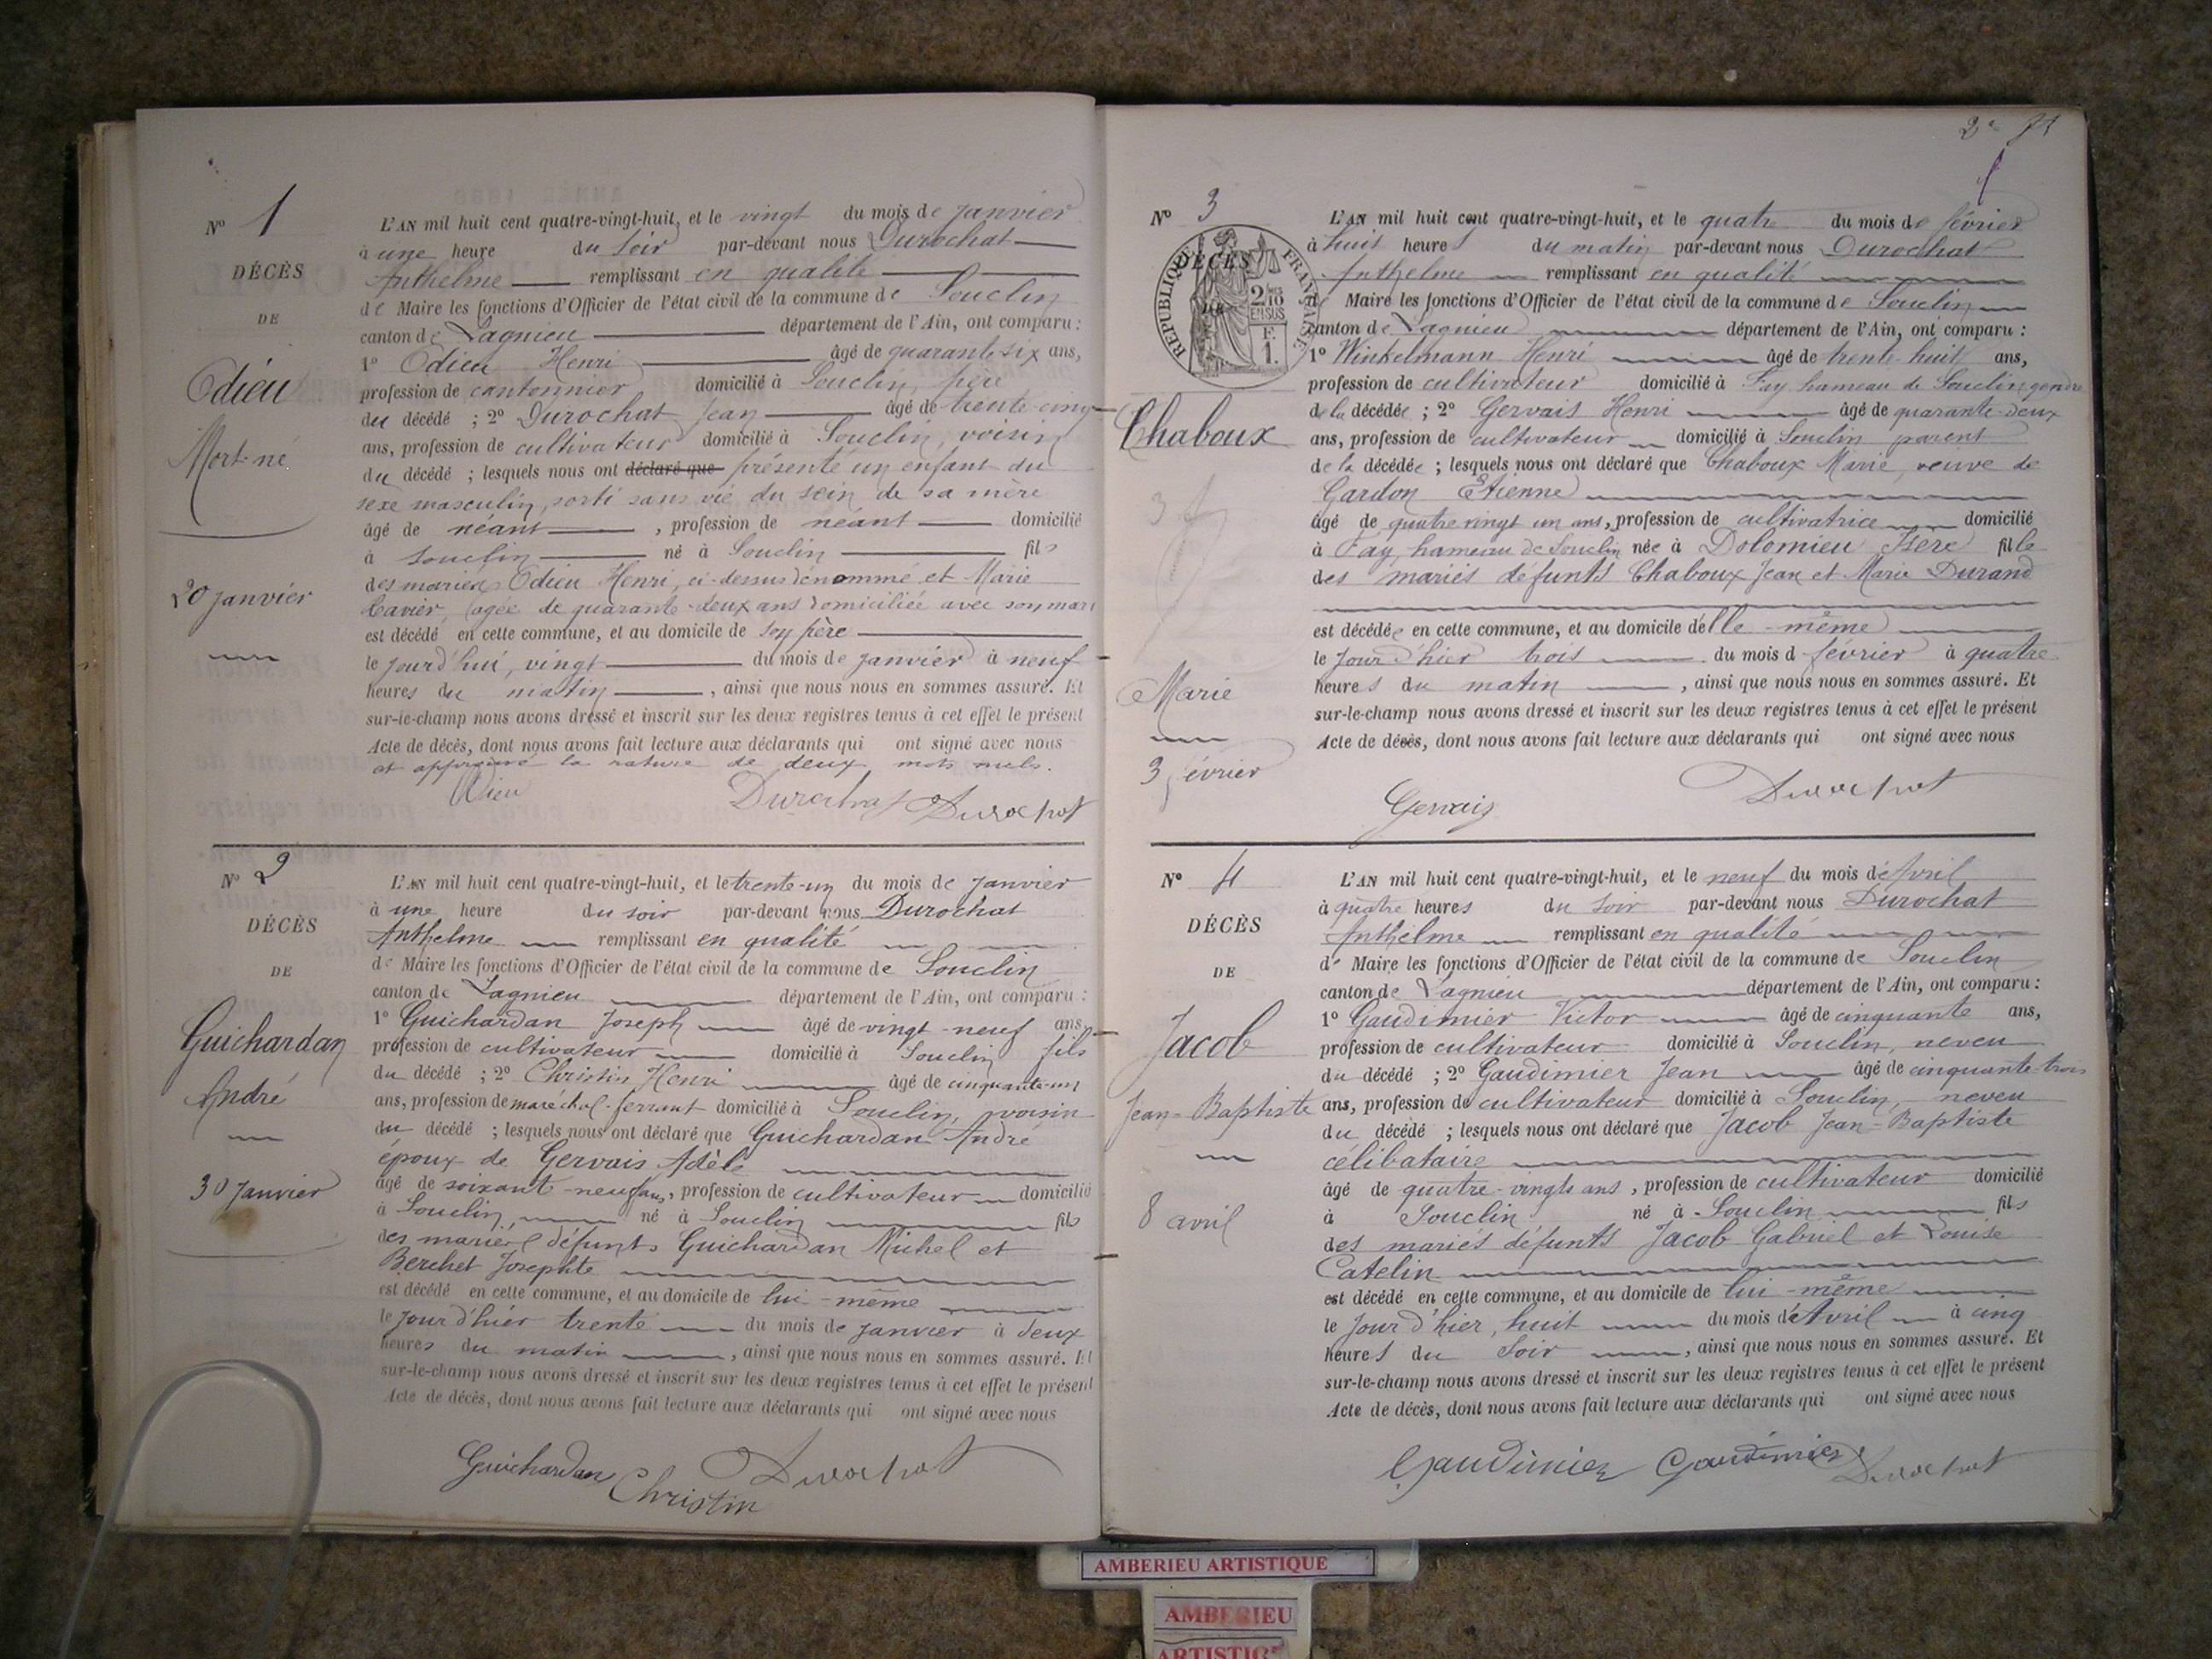 N° 1
DÉCÈS
DE
Odieu
Mort-né
20 janvier
L'AN mil huit cent quatre-vingt-huit, et le vingt du mois de janvier
à une heure du soir par-devant nous Durochat
Anthelme remplissant en qualité
de Maire les fonctions d'Officier de l'état civil de la commune de Souclin
canton de Lagnieu département de l'Ain, ont comparu :
1° Odieu Henri âgé de quarante six ans,
profession de cantonnier domicilié à Souclin, père
du décédé ; 2° Durochat Jean âgé de trente-cinq
ans, profession de cultivateur domicilié à Souclin, voisin
du décédé ; lesquels nous ont déclaré que présenté un enfant du
sexe masculin, sorti sans vie du sein de sa mère
âgé de néant , profession de néant domicilié
à Souclin né à Souclin fils
des mariés Odieu Henri, ci-dessus dénommé et Marie
Cavier, âgée de quarante-deux ans domiciliée avec son mari
est décédé en cette commune, et au domicile de son père
le jourd'hui, vingt du mois de janvier à neuf
heures du matin , ainsi que nous nous en sommes assuré. Et
sur-le-champ nous avons dressé et inscrit sur les deux registres tenus à cet effet le présent
Acte de décès, dont nous avons fait lecture aux déclarants qui ont signé avec nous
et approuvé la rature de deux mots nuls.
Odieu Durochat Durochat
N° 2
DÉCÈS
DE
Guichardan
André
30 Janvier
L'AN mil huit cent quatre-vingt-huit, et le trente-un du mois de janvier
à une heure du soir par-devant nous Durochat
Anthelme remplissant en qualité
de Maire les fonctions d'Officier de l'état civil de la commune de Souclin
canton de Lagnieu département de l'Ain, ont comparu :
1° Guichardan Joseph âgé de vingt-neuf ans
profession de cultivateur domicilié à Souclin fils
du décédé ; 2° Christin Henri âgé de cinquante-un
ans, profession de maréchal-ferrant domicilié à Souclin, voisin
du décédé ; lesquels nous ont déclaré que Guichardan André
époux de Gervais Adèle
âgé de soixante-neuf ans, profession de cultivateur domicilié
à Souclin, né à Souclin fils
des mariés défunts Guichardan Michel et
Berchet Josephte
est décédé en cette commune, et au domicile de lui-même
le jour d'hier trente du mois de janvier à deux
heures du matin , ainsi que nous nous en sommes assuré. Et
sur-le-champ nous avons dressé et inscrit sur les deux registres tenus à cet effet le présent
Acte de décès, dont nous avons fait lecture aux déclarants qui ont signé avec nous
Guichardan Christin Durochat
2e
N° 3
DÉCÈS
DE
RÉPUBLIQUE FRANÇAISE
2/10 EN SUS
F. 1.
Chaboux
Marie
3 février
L'AN mil huit cent quatre-vingt-huit, et le quatre du mois de février
à huit heures du matin par-devant nous Durochat
Anthelme remplissant en qualité
de Maire les fonctions d'Officier de l'état civil de la commune de Souclin
canton de Lagnieu département de l'Ain, ont comparu :
1° Winkelmann Henri âgé de trente-huit ans,
profession de cultivateur domicilié à Fay hameau de Souclin gendre
de la décédée ; 2° Gervais Henri âgé de quarante-deux
ans, profession de cultivateur domicilié à Souclin parent
de la décédée ; lesquels nous ont déclaré que Chaboux Marie, veuve de
Gardon Etienne
âgé de quatre vingt un ans, profession de cultivatrice domicilié
à Fay, hameau de Souclin née à Dolomieu Isere fille
des mariés défunts Chaboux Jean et Marie Durand
est décédée en cette commune, et au domicile d'elle-même
le jour d'hier trois du mois d février à quatre
heures du matin , ainsi que nous nous en sommes assuré. Et
sur-le-champ nous avons dressé et inscrit sur les deux registres tenus à cet effet le présent
Acte de décès, dont nous avons fait lecture aux déclarants qui ont signé avec nous
Gervais Durochat
N° 4
DÉCÈS
DE
Jacob
Jean-Baptiste
8 avril
L'AN mil huit cent quatre-vingt-huit, et le neuf du mois d'Avril
à quatre heures du soir par-devant nous Durochat
Anthelme remplissant en qualité
de Maire les fonctions d'Officier de l'état civil de la commune de Souclin
canton de Lagnieu département de l'Ain, ont comparu :
1° Gaudimier Victor âgé de cinquante ans,
profession de cultivateur domicilié à Souclin, neveu
du décédé ; 2° Gaudimier Jean âgé de cinquante-trois
ans, profession de cultivateur domicilié à Souclin, neveu
du décédé ; lesquels nous ont déclaré que Jacob Jean-Baptiste
célibataire
âgé de quatre-vingts ans , profession de cultivateur domicilié
à Souclin né à Souclin fils
des mariés défunts Jacob Gabriel et Louise
Catelin
est décédé en cette commune, et au domicile de lui-même
le jour d'hier, huit du mois d'Avril à cinq
heures du soir , ainsi que nous nous en sommes assuré. Et
sur-le-champ nous avons dressé et inscrit sur les deux registres tenus à cet effet le présent
Acte de décès, dont nous avons fait lecture aux déclarants qui ont signé avec nous
Gaudimier Gaudimier Durochat
AMBERIEU ARTISTIQUE
AMBERIEU